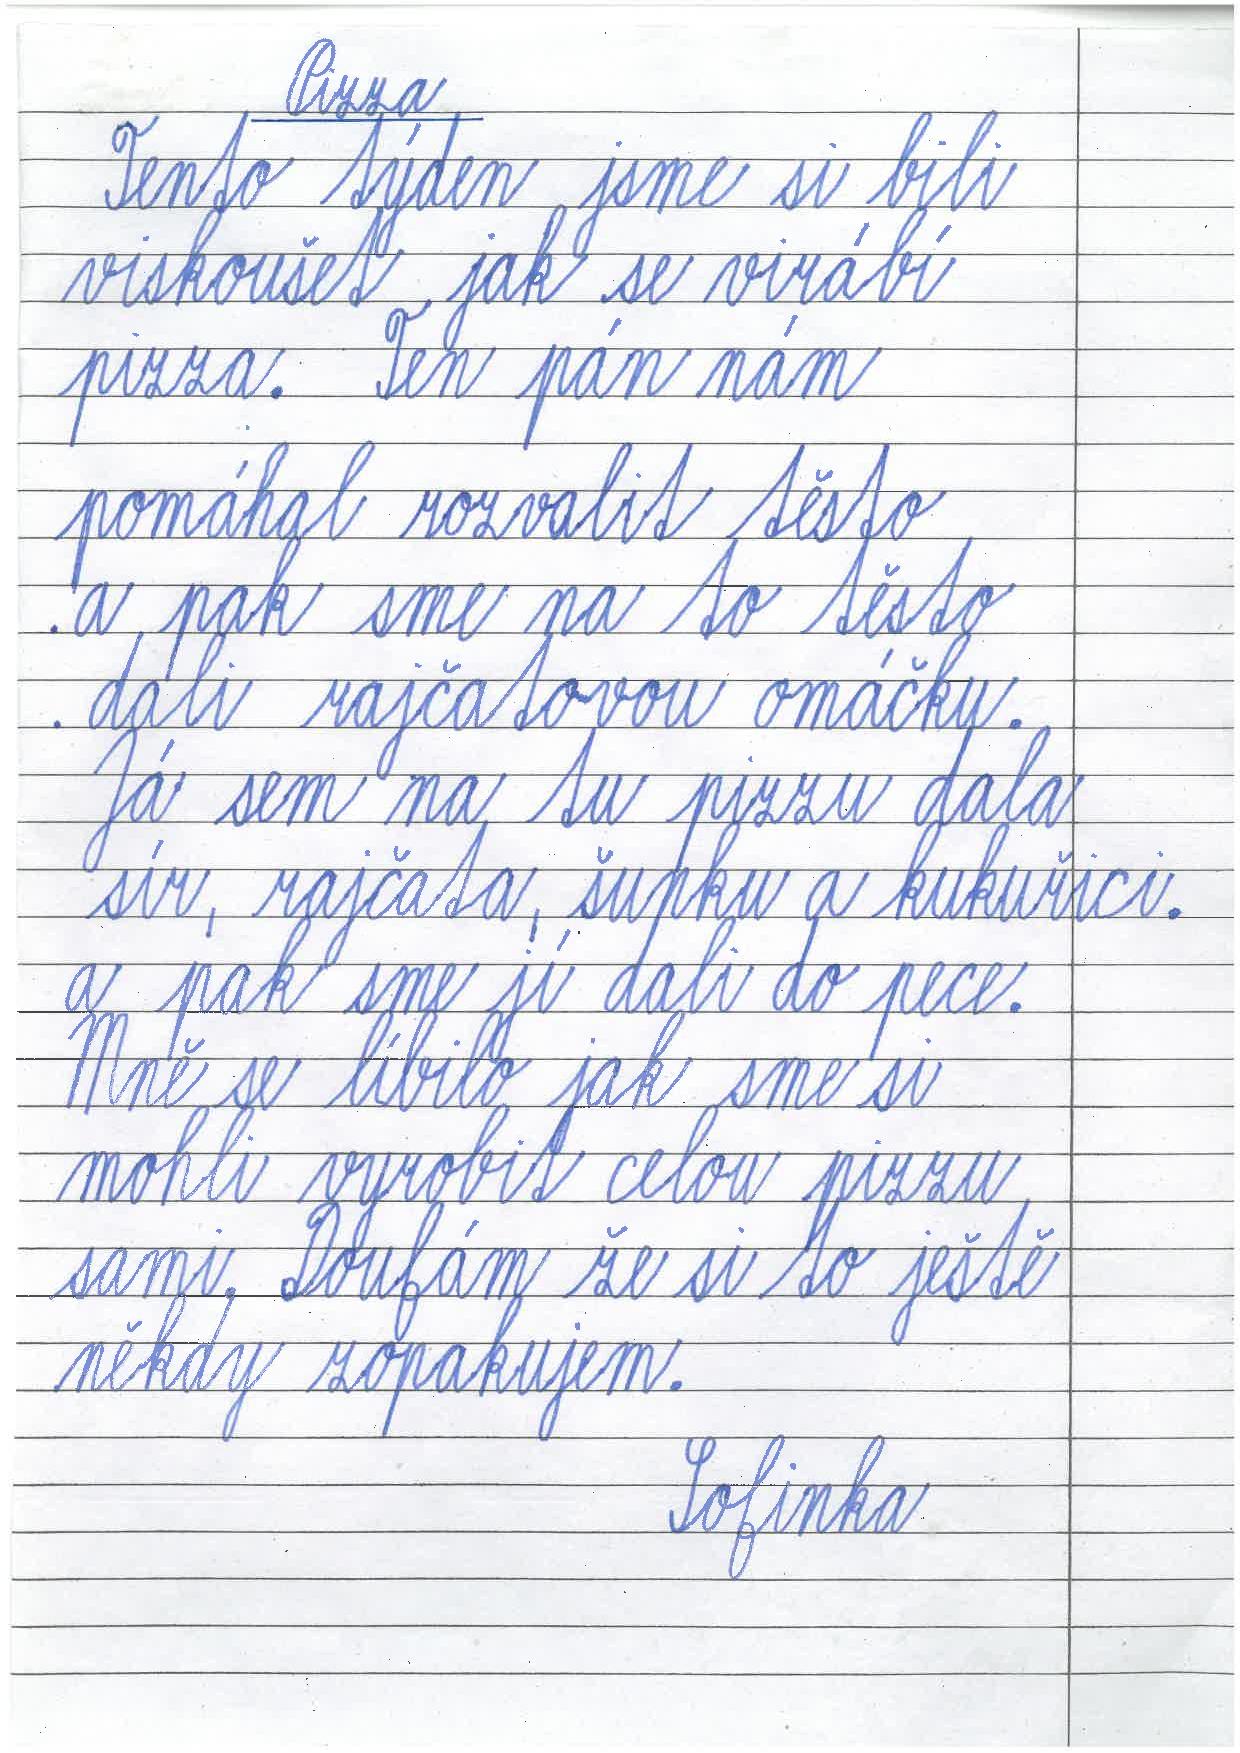 Pizza
Tento týden jsme si bili
viskoušet jak se virábí
pizza. Ten pán nám
pomáhal rozvalit těsto
a pak sme na to těsto
dali rajčatovou omáčku.
Já sem na tu pizzu dala
sír, rajčata, šupku a kukuřici.
a pak sme jí dali do pece.
Mně se líbilo jak sme si
mohli vyrobit celou pizzu
sami. Doufám že si to ještě
někdy zopakujem.
Sofinka